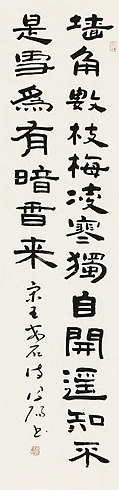 墙角數枝梅凌寒獨自開遥知不
是雪為有暗香来
宋王安石诗